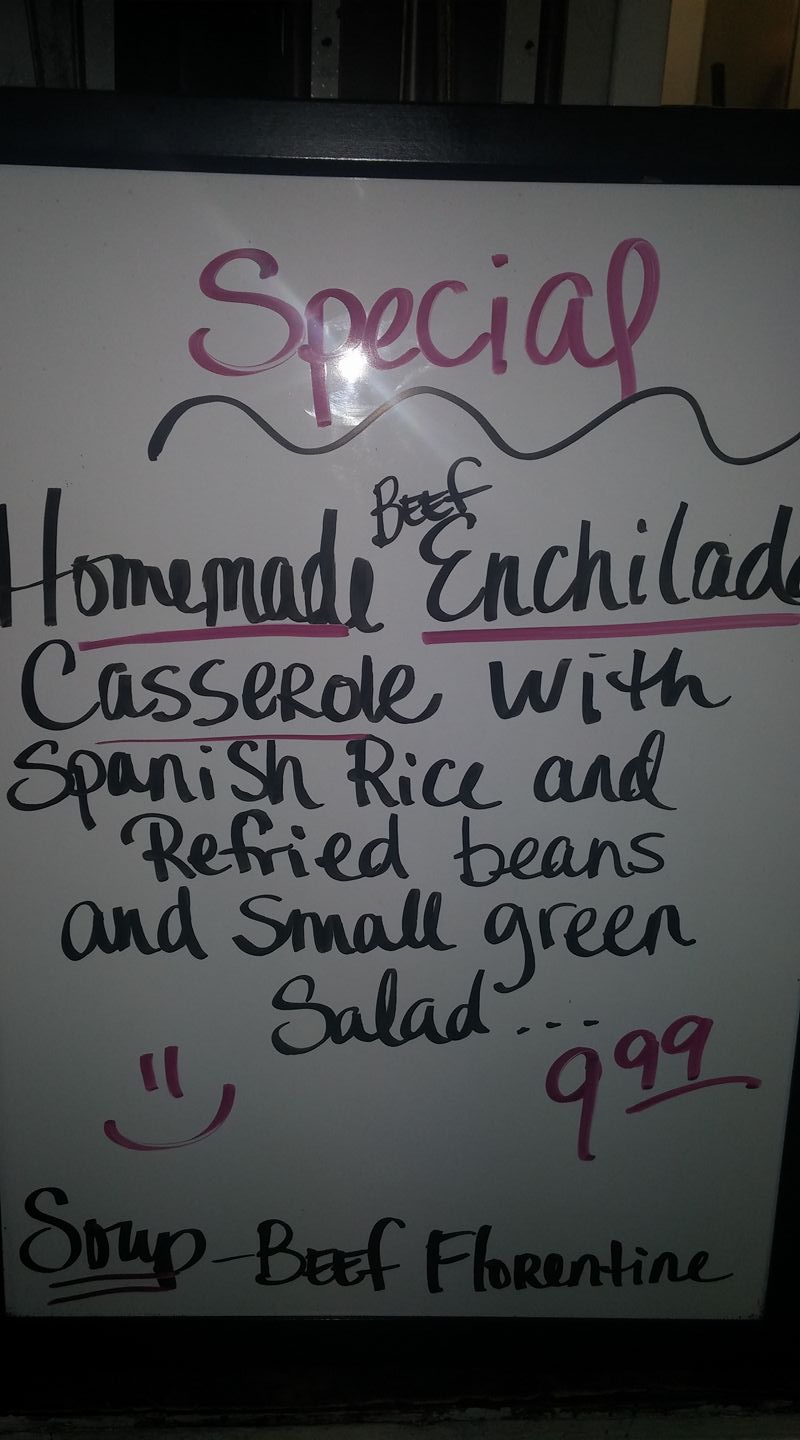 Special
BEEF
Homemade Enchilada
Casserole with
Spanish Rice and
Refried beans
and small green
Salad...
9 99
Soup - BEEF Florentine